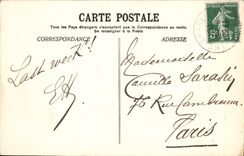 CARTE POSTALE
Tous les Pays étrangers n'acceptent pas la Correspondance au recto
Se renseigner à la Poste
CORRESPONDANCE
ADRESSE
Last week!
Mademoiselle
Camille
76 Rue Cambronne
Paris